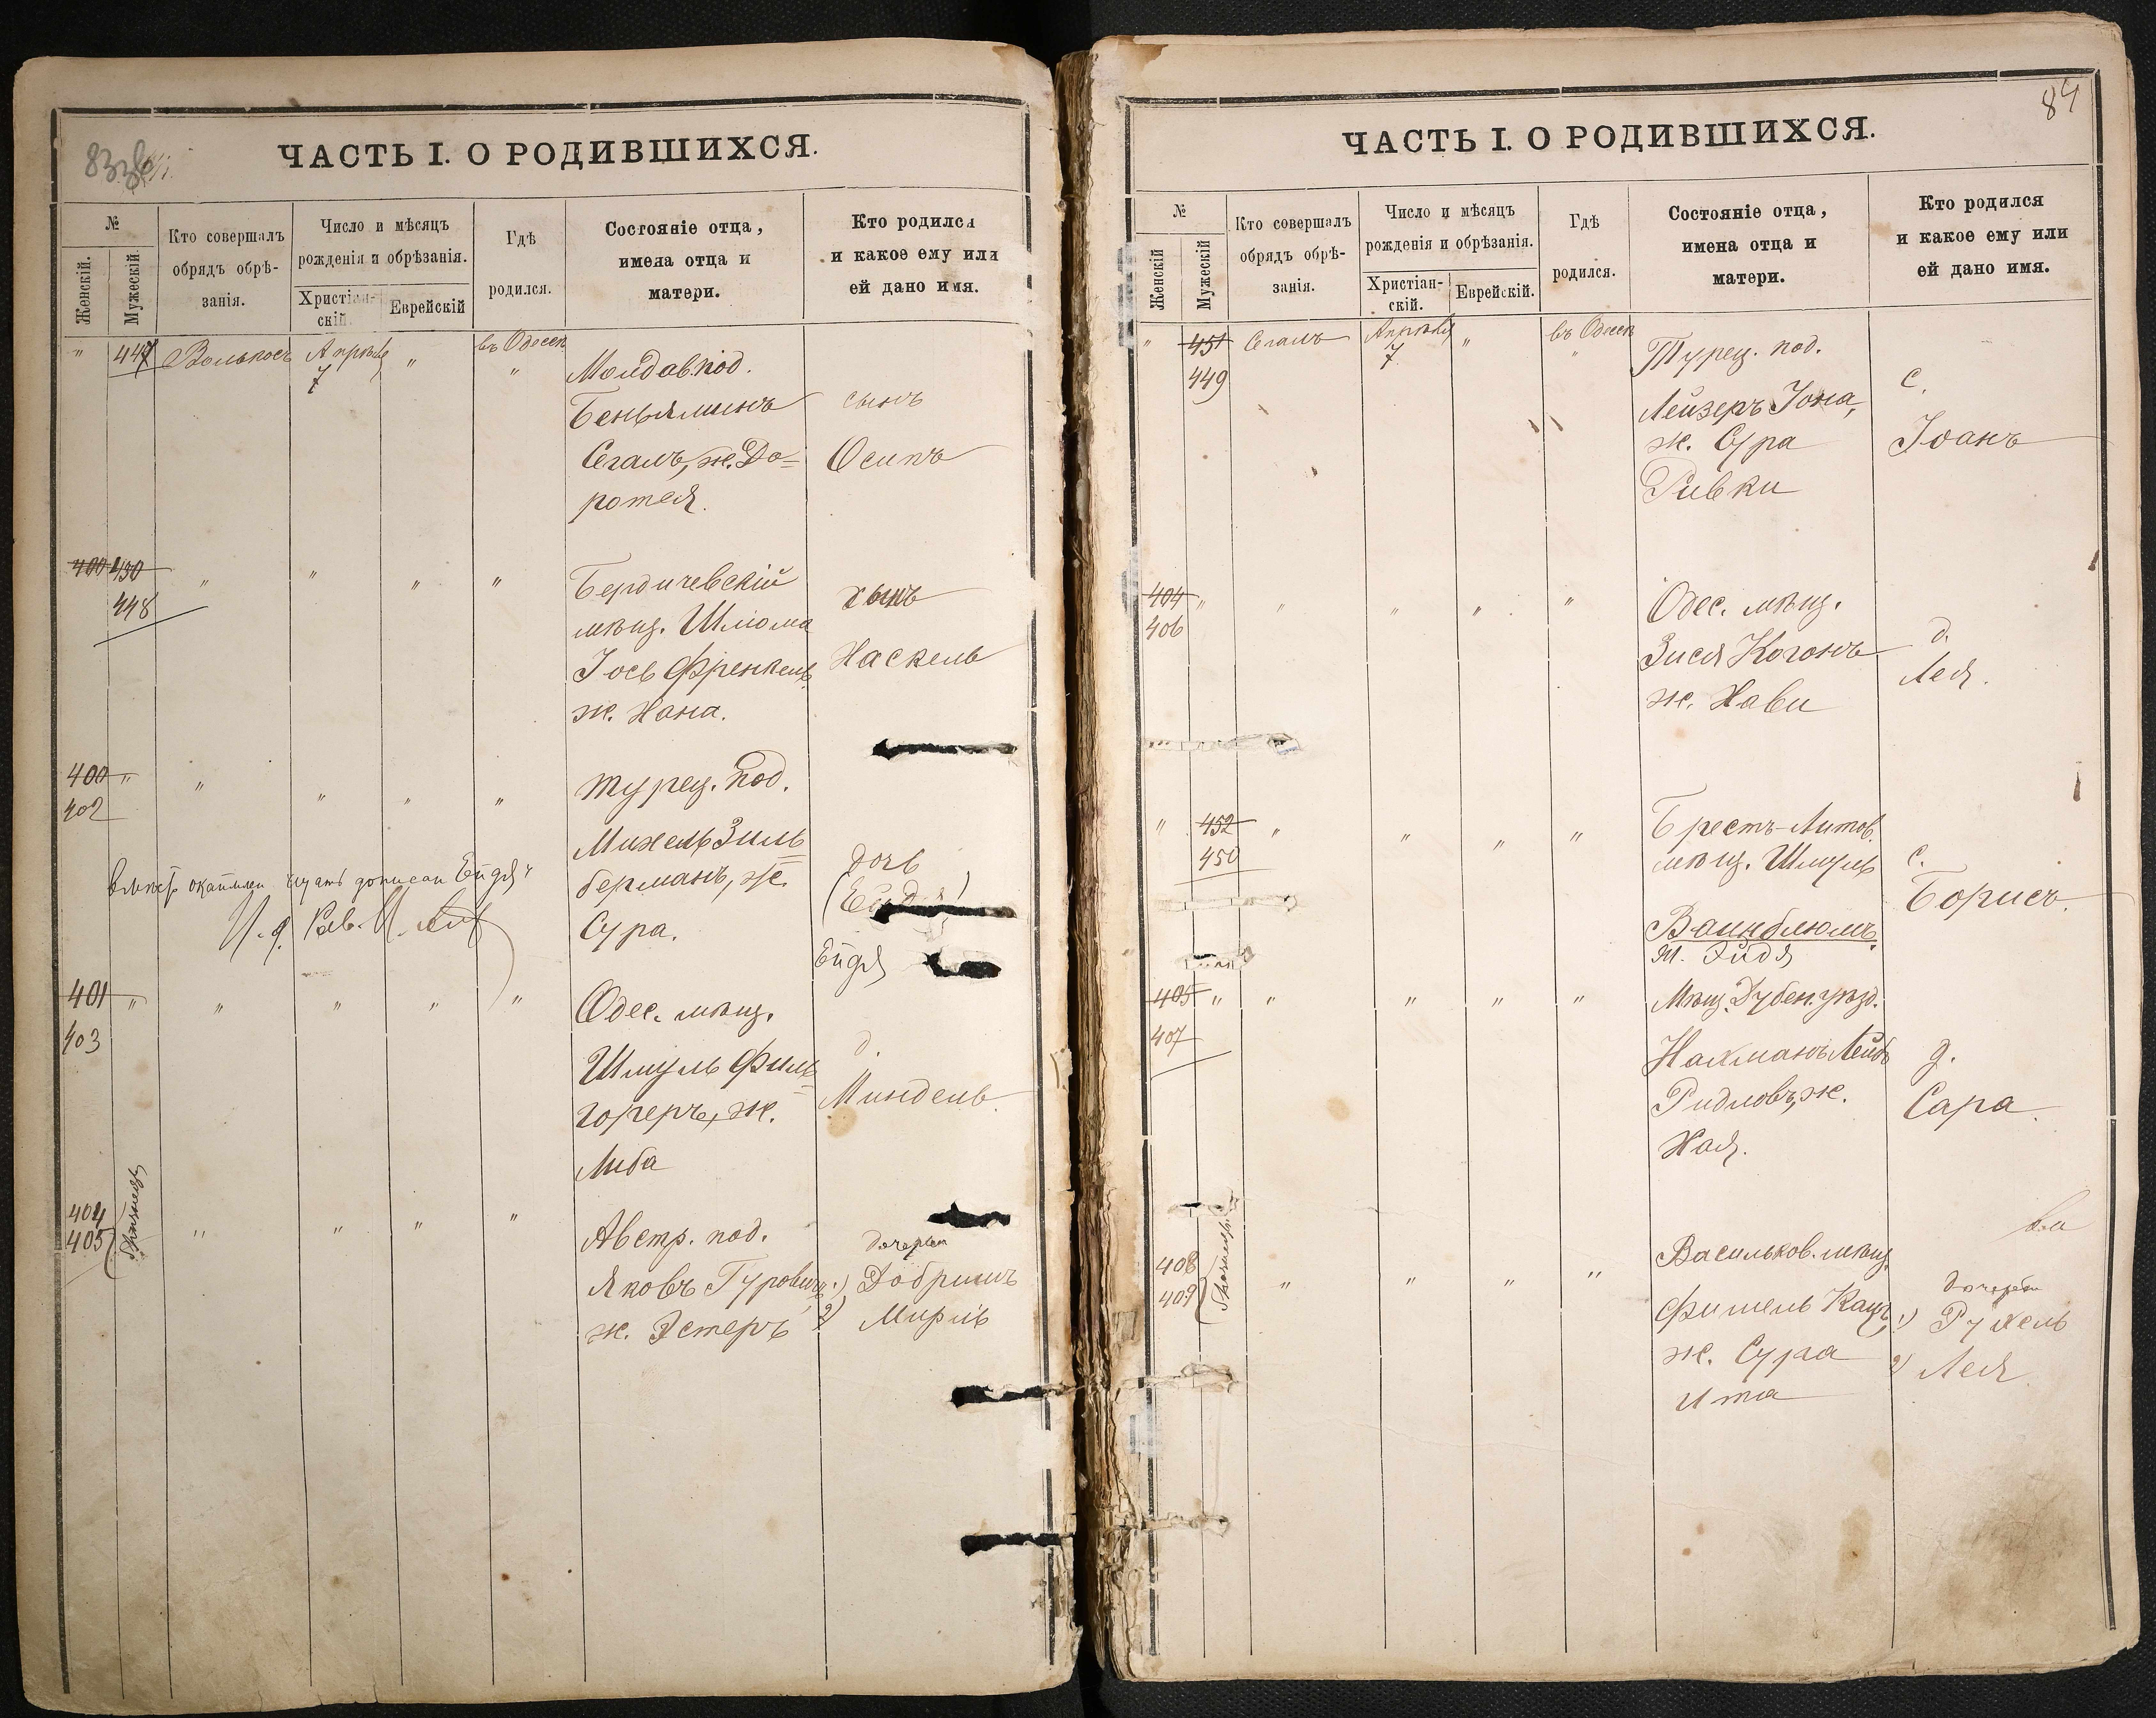 83
ЧАСТЬ I. О РОДИВШИХСЯ.
№
Женскій.
Мужескій
Кто совершалъ
обрядъ обрѣ-
занія.
Число и мѣсяцъ
рожденія и обрѣзанія.
Христіан-
скій.
Еврейскій
Гдѣ
родился.
Состояніе отца,
имена отца и
матери.
Кто родился
и какое ему или
ей дано имя.
" 447 Апрѣль 7 " въ Одессѣ "
Молдав. под.
Беньяминъ
Сегалъ, ж. До=
ротея.
сынъ
Осипъ
400 450 " " " "
448
Бердичевскій
мѣщ. Шлиома
Іось Френкель
ж. Хана.
сынъ
Хаскель
400 " " " " "
402
Турец. под.
Михель Зиль=
берманъ, ж.
Сура.
дочь
(Ейдя)
Ейдя
401 " " " " "
403
Одес. мѣщ.
Шмуль Филь=
гореръ, ж.
Либа
д.
Миндель.
404
405 " " " "
Австр. под.
Яковъ Гуровичъ
ж. Эстеръ
дочери
1) Добришъ
2) Мирль
84
ЧАСТЬ I. О РОДИВШИХСЯ.
№
Женскій
Мужескій
Кто совершалъ
обрядъ обрѣ-
занія.
Число и мѣсяцъ
рожденія и обрѣзанія.
Христіан-
скій.
Еврейскій.
Гдѣ
родился.
Состояніе отца,
имена отца и
матери.
Кто родился
и какое ему или
ей дано имя.
" 451 Сегалъ Апрѣль 7 " въ Одессѣ "
449
Турец. под.
Лейзеръ Іона,
ж. Сура
Ривки
с.
Іоанъ
404 " " " " "
406
Одес. мѣщ.
Зися Когонъ
ж. Хави
д.
Лея.
" 452 " " " "
450
Брестъ-Литов.
мѣщ. Шмуль
Вайнблюмъ.
ж. Эйдя
с.
Борисъ.
405 " " " " "
407
Мѣщ. Дубен. уѣзд.
Нахманъ Лейбъ
Ридловъ, ж.
Хая.
д.
Сара.
408
409 " " " "
Васильков. мѣщ.
Фишель Кацъ,
ж. Сура
Ита
дочери
1) Рухель
2) Лея